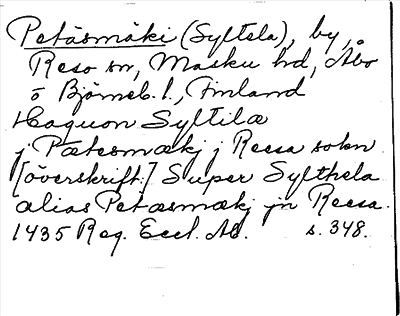 Petäsmäki (Syltela), by,
Reso sn, Masku hd, Åbo
o Björneb. l., Finland
Haquon Syltilæ
j Pætesmækj j Reesa sokn
[överskrift:] Super Sylthela
alias Petæsmækj jn Reesa.
1435 Reg. Eccl. Ab. s. 348.